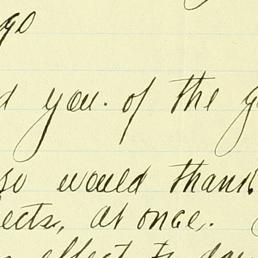 ago
d you. of the g
so would thank
ects, at once.
effect to